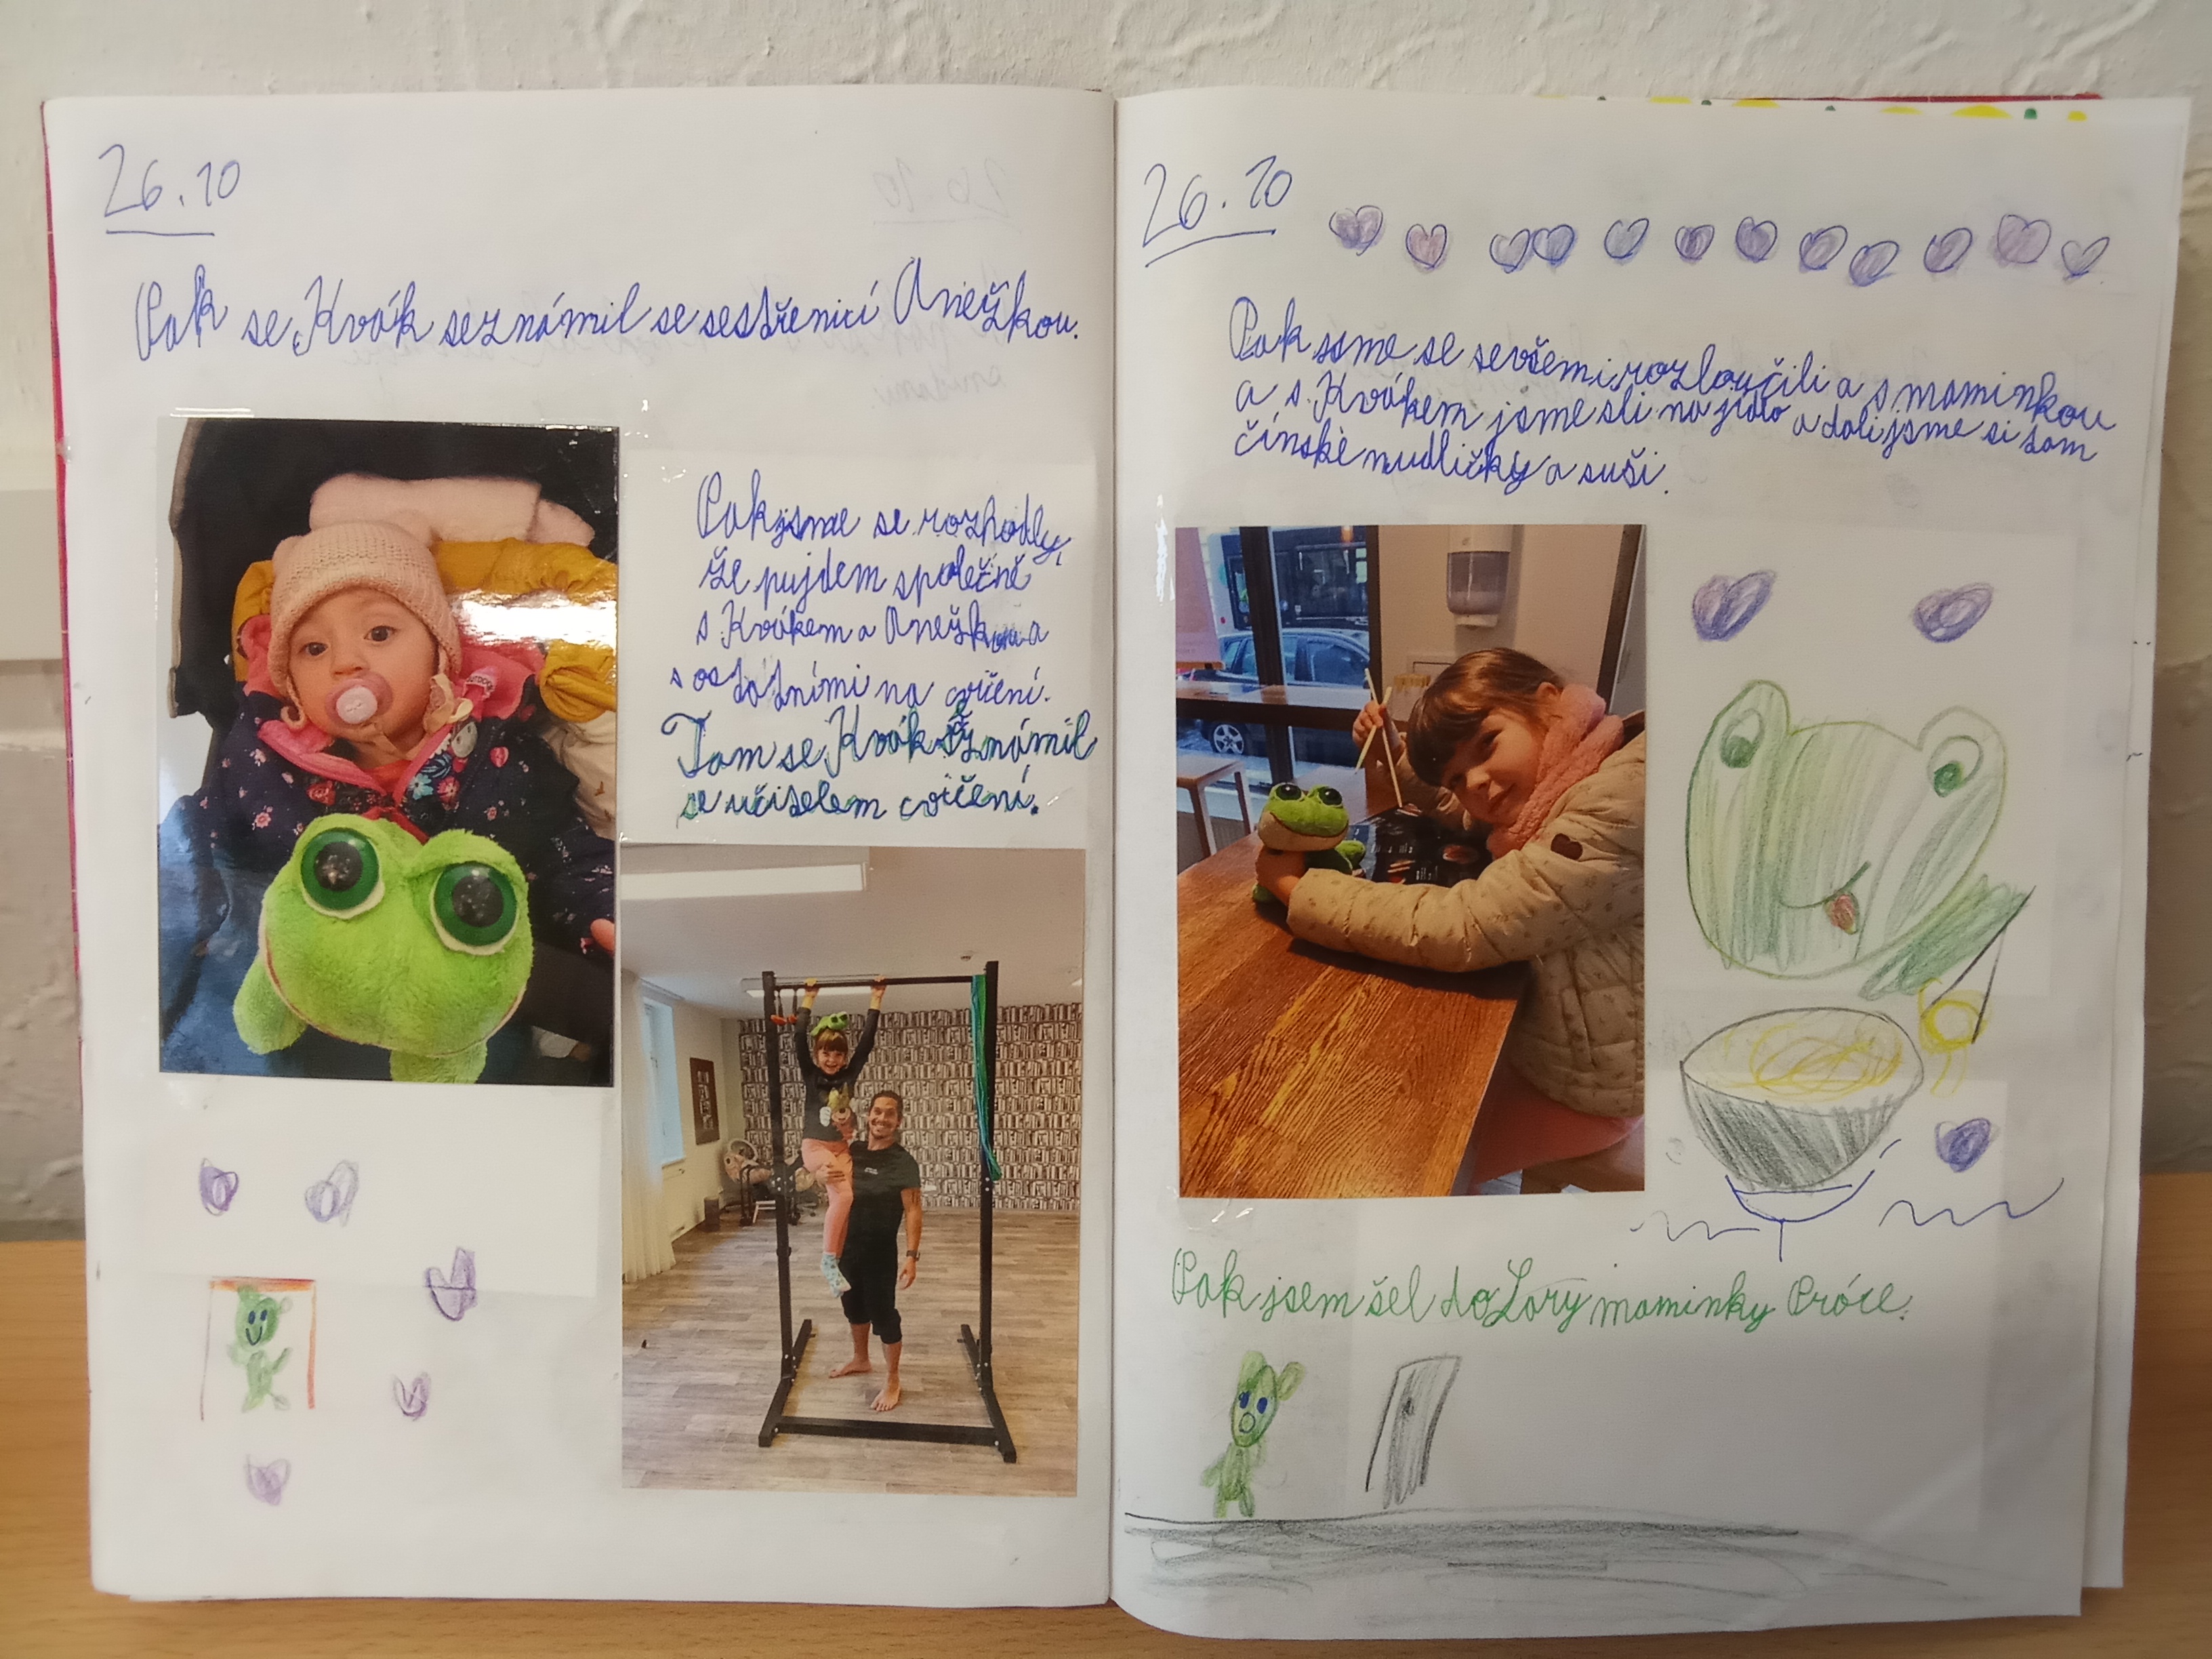 26.10
Pak se Kvák seznámil se sestřenicí Anežkou.
Pak jsme se rozhodly,
že pujdem společně
s Kvákem a Anežkou a
s ostatními na cvičení.
Tam se Kvák seznámil
se učitelem cvičení.
26.10
Pak jsme se sevšemi rozloučili a s maminkou
a s Kvákem jsme sli na jídlo a dali jsme si tam
čínské nudličky a suši.
Pak jsem šel do Lory maminky Práce.